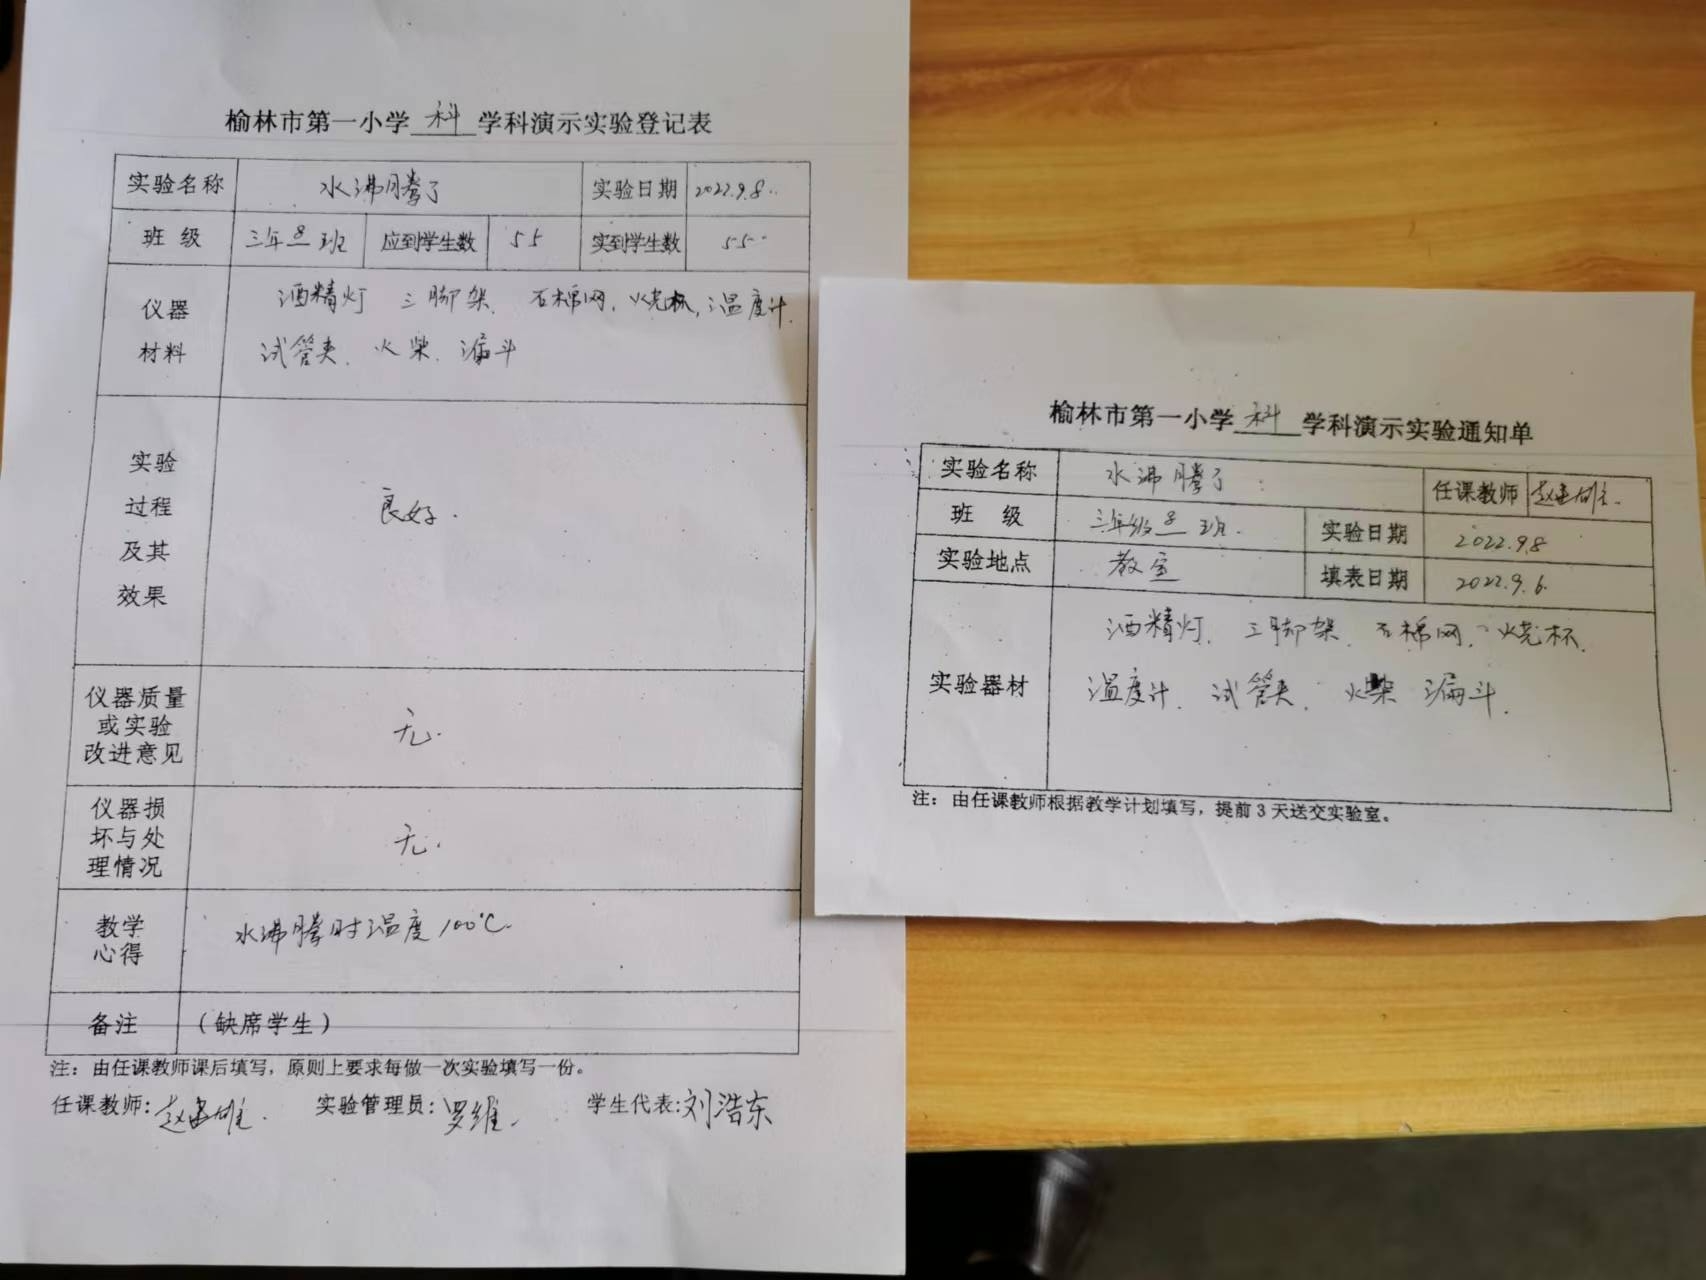 榆林市第一小学 科 学科演示实验登记表
实验名称 水沸腾了 实验日期 2022.9.8.
班 级 三年8班 应到学生数 55 实到学生数 55
仪器材料 酒精灯 三脚架. 石棉网. 烧杯, 温度计.
试管夹. 火柴. 漏斗
实验过程及其效果 良好.
仪器质量或实验改进意见 无.
仪器损坏与处理情况 无.
教学心得 水沸腾时温度100℃.
备注 (缺席学生)
注：由任课教师课后填写，原则上要求每做一次实验填写一份。
任课教师: 赵建雄. 实验管理员: 罗维. 学生代表: 刘浩东
榆林市第一小学 科 学科演示实验通知单
实验名称 水沸腾了 任课教师 赵建雄.
班 级 三年级8班. 实验日期 2022.9.8
实验地点 教室 填表日期 2022.9.6.
实验器材 酒精灯. 三脚架. 石棉网. 烧杯.
温度计. 试管夹. 火柴 漏斗.
注：由任课教师根据教学计划填写，提前3天送交实验室。